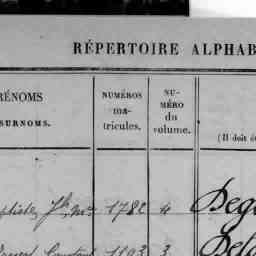 RÉPERTOIRE ALPHAB
RÉNOMS
SURNOMS.
NUMÉROS
ma-
tricules.
NU-
MÉRO
du
volume.
(Il doit ê
1782 4
Deg
1193 3